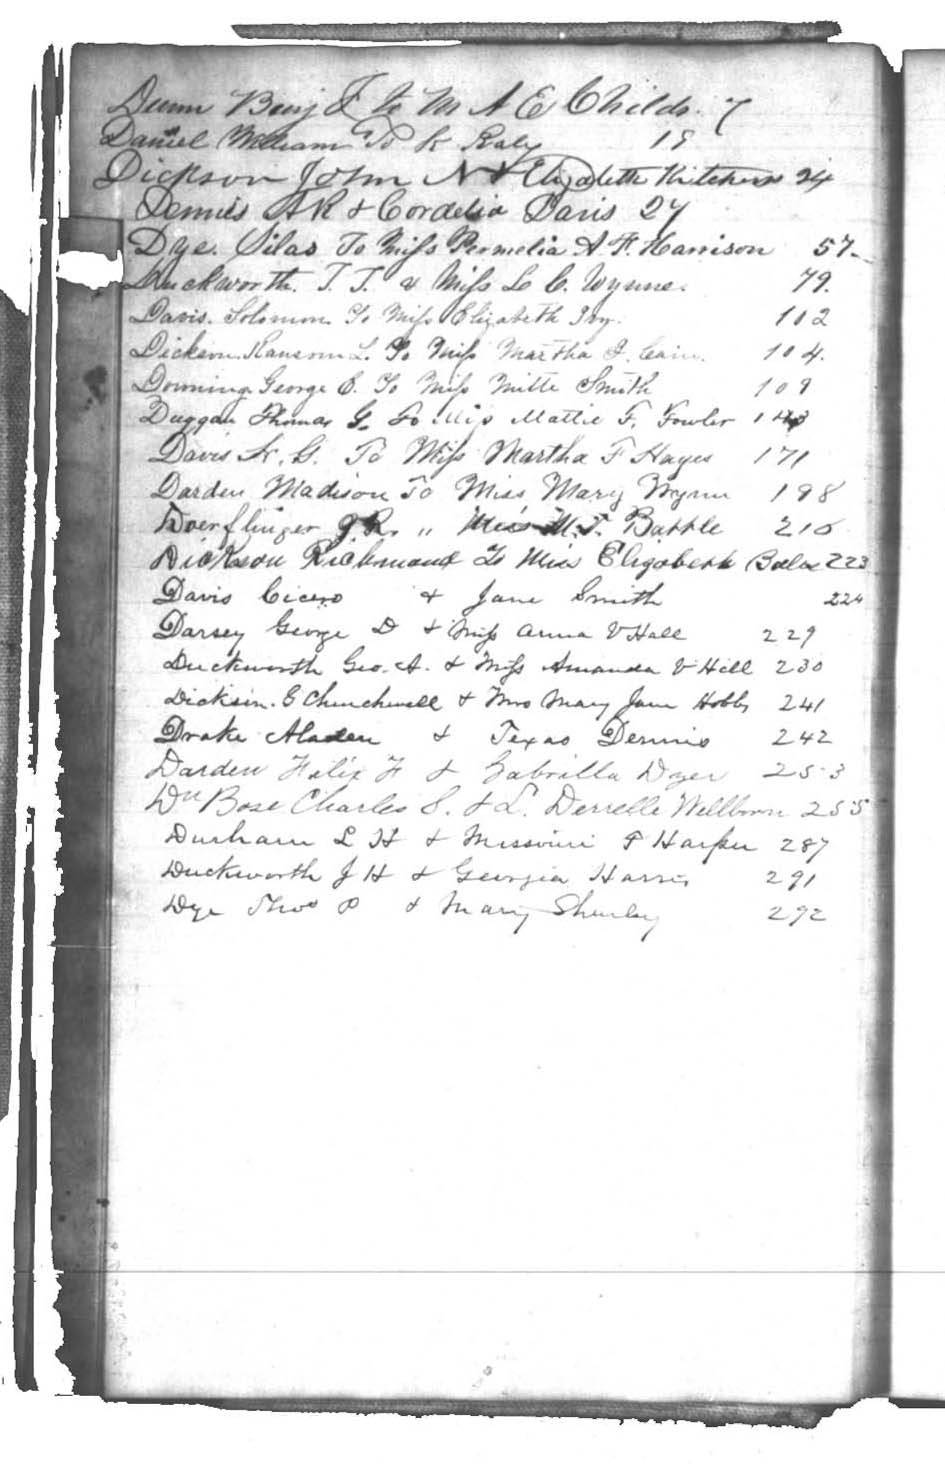 Dunn Benj F to M A E Childs. 7
Daniel William G To K Raly 18
Dickson John N & Elizabeth Kitchens 24
Dennis A R & Cordelia Davis 27
Dye. Silas To Miss Permelia A. F. Harrison 57.
Duckworth. T. J. & Miss L. C. Wynne. 79.
Davis. Solomon To Miss Elizabeth Ivy. 102
Dickson Ransom L. To Miss Martha J. Cain. 104.
Downing George C. To Miss Mitte Smith 109
Duggan Thomas G. To Miss Mattie F. Fowler
Davis A. G. To Miss Martha F Hayes 171
Darden Madison To Miss Mary Wynn 198
Doerflinger J. R. " Miss M. T. Battle 216
Dickson Richmond To Miss Elizabeth 223
Davis Cicero & Jane Smith 224
Darsey George D & Miss Anna V Hall 229
Duckworth Geo. A. & Miss Amanda V Hill 230
Dickson. E Chuchwell & Mrs Mary Jane Hobbs 241
Drake Aladen & Texas Dennis 242
Darden Felix F & Gabrilla Dyer 253
Du Bose Charles S. & L. Derrelle Wellborn 255
Durham L H & Missouri P Harper 287
Duckworth J H & Georgia Harris 291
Dye Thos P & Mary Shurley 292